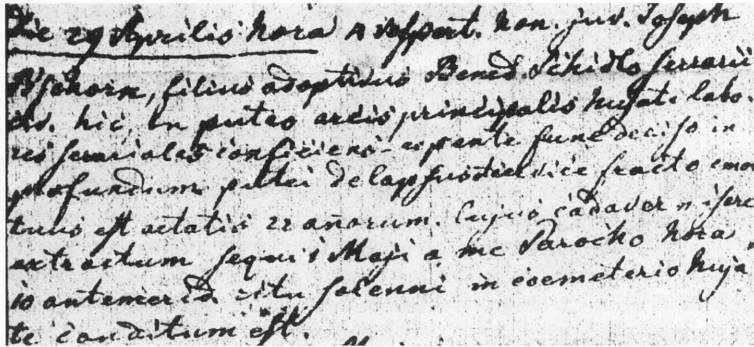 Die 29 Aprilis hora 4 vespert. hon. juv. Joseph
Pschorn, filius adoptivus Bened. Schidlo ferrarii
civ. hic, in puteo arcis principalis hujati labo
res feriales conficiens repente fune deciso in
profundum putei delapsus cervice fracto emor
tuus est aetatis 22 anorum. Cujus cadaver
extractum sequi 1 Maji a me Parocho hora
10 antemerid. ritu solenni in coemeterio huja
te conditum est.